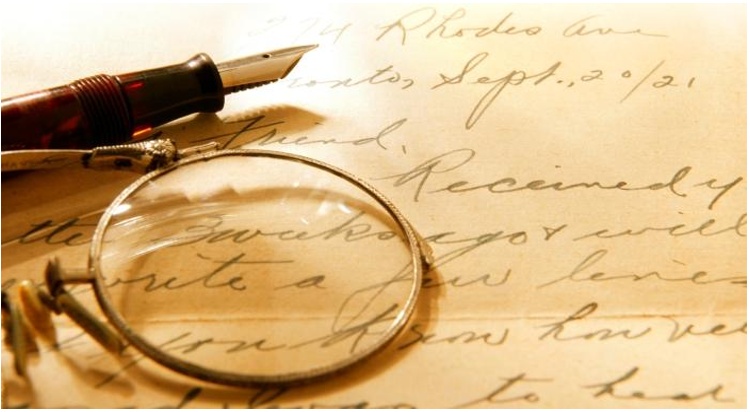 Rhodes Ave
Sept., 20/21
friend.
Received y
tter 3 weeks ago & will
write a few lines
you know how ve
I was to hear